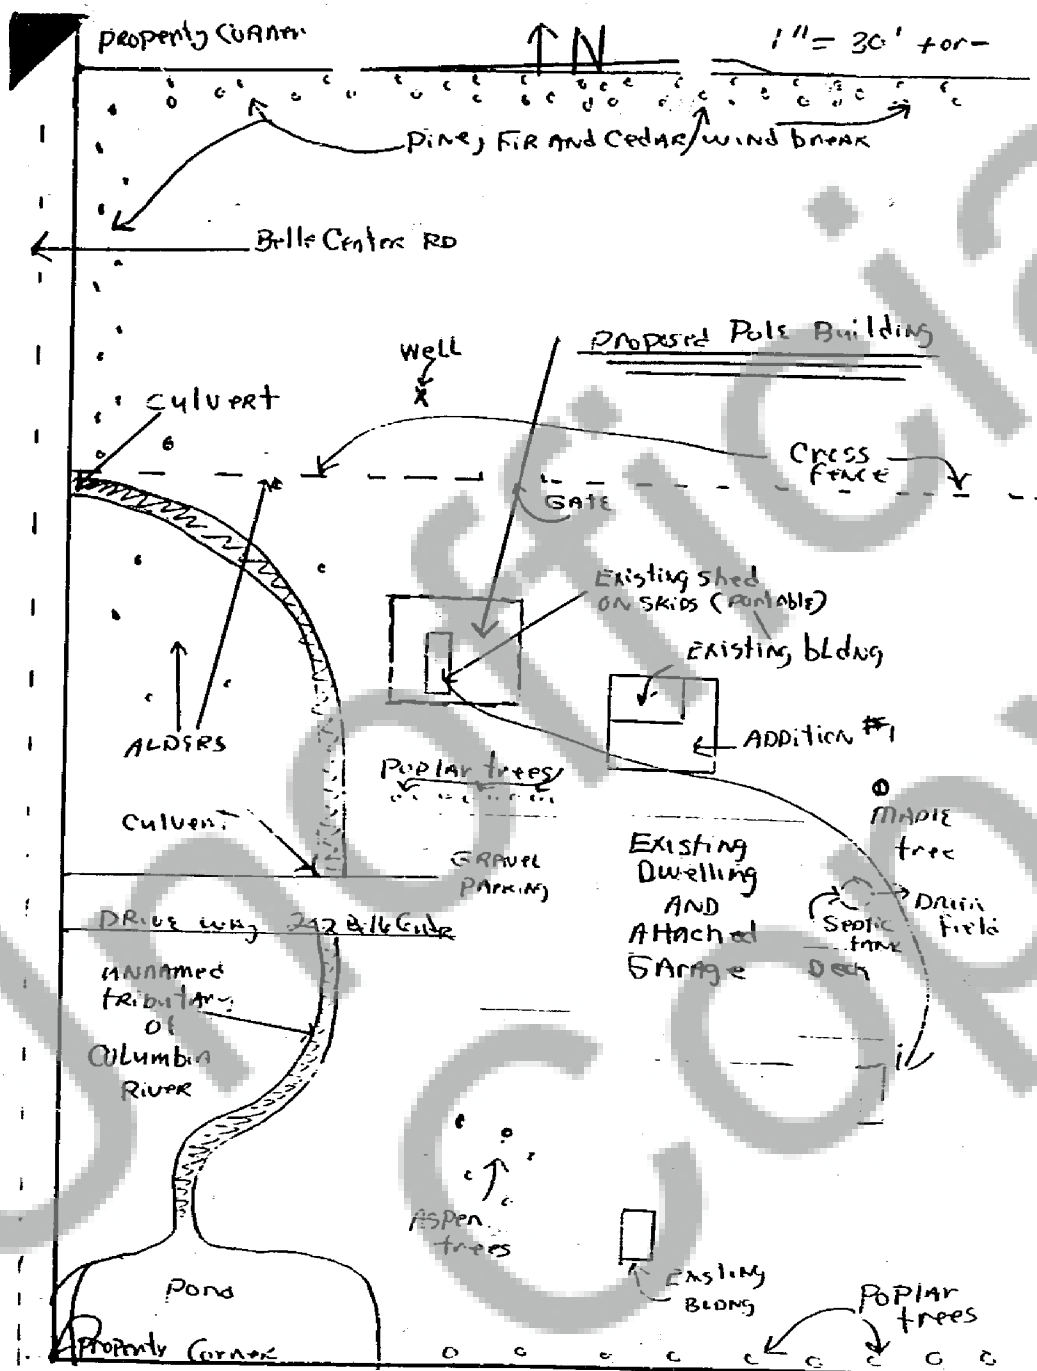 Property Corner
N
1" = 30' + or -
Pine, Fir and Cedar/wind break
Belle Center RD
Proposed Pole Building
Well
X
Culvert
Cross
Fence
GATE
Existing shed
ON SKIDS (portable)
Existing bldng
ADDITION #1
ALDERS
Poplar trees
Culvert
MAPLE
tree
GRAVEL
PARKING
Existing
Dwelling
AND
Attached
Garage
Septic
TANK
Drain
Field
Deck
DRIVE WAY 242 Belle Center
UNNAMED
tributary
of
Columbia
River
Aspen
trees
Existing
BLDNG
Pond
Poplar
trees
Property Corner
Unofficial
Copy